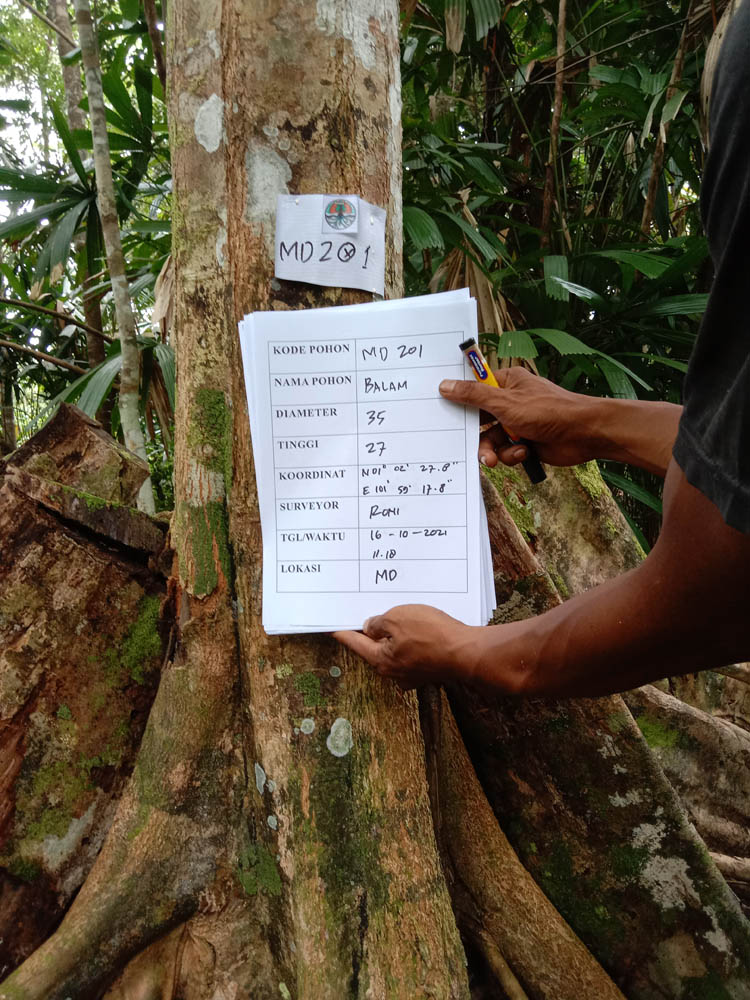 MD201
KODE POHON MD 201
NAMA POHON BALAM
DIAMETER 35
TINGGI 27
KOORDINAT N01° 02' 27.8"
E 101° 59' 17.8"
SURVEYOR RONI
TGL/WAKTU 16-10-2021
11.18
LOKASI MD